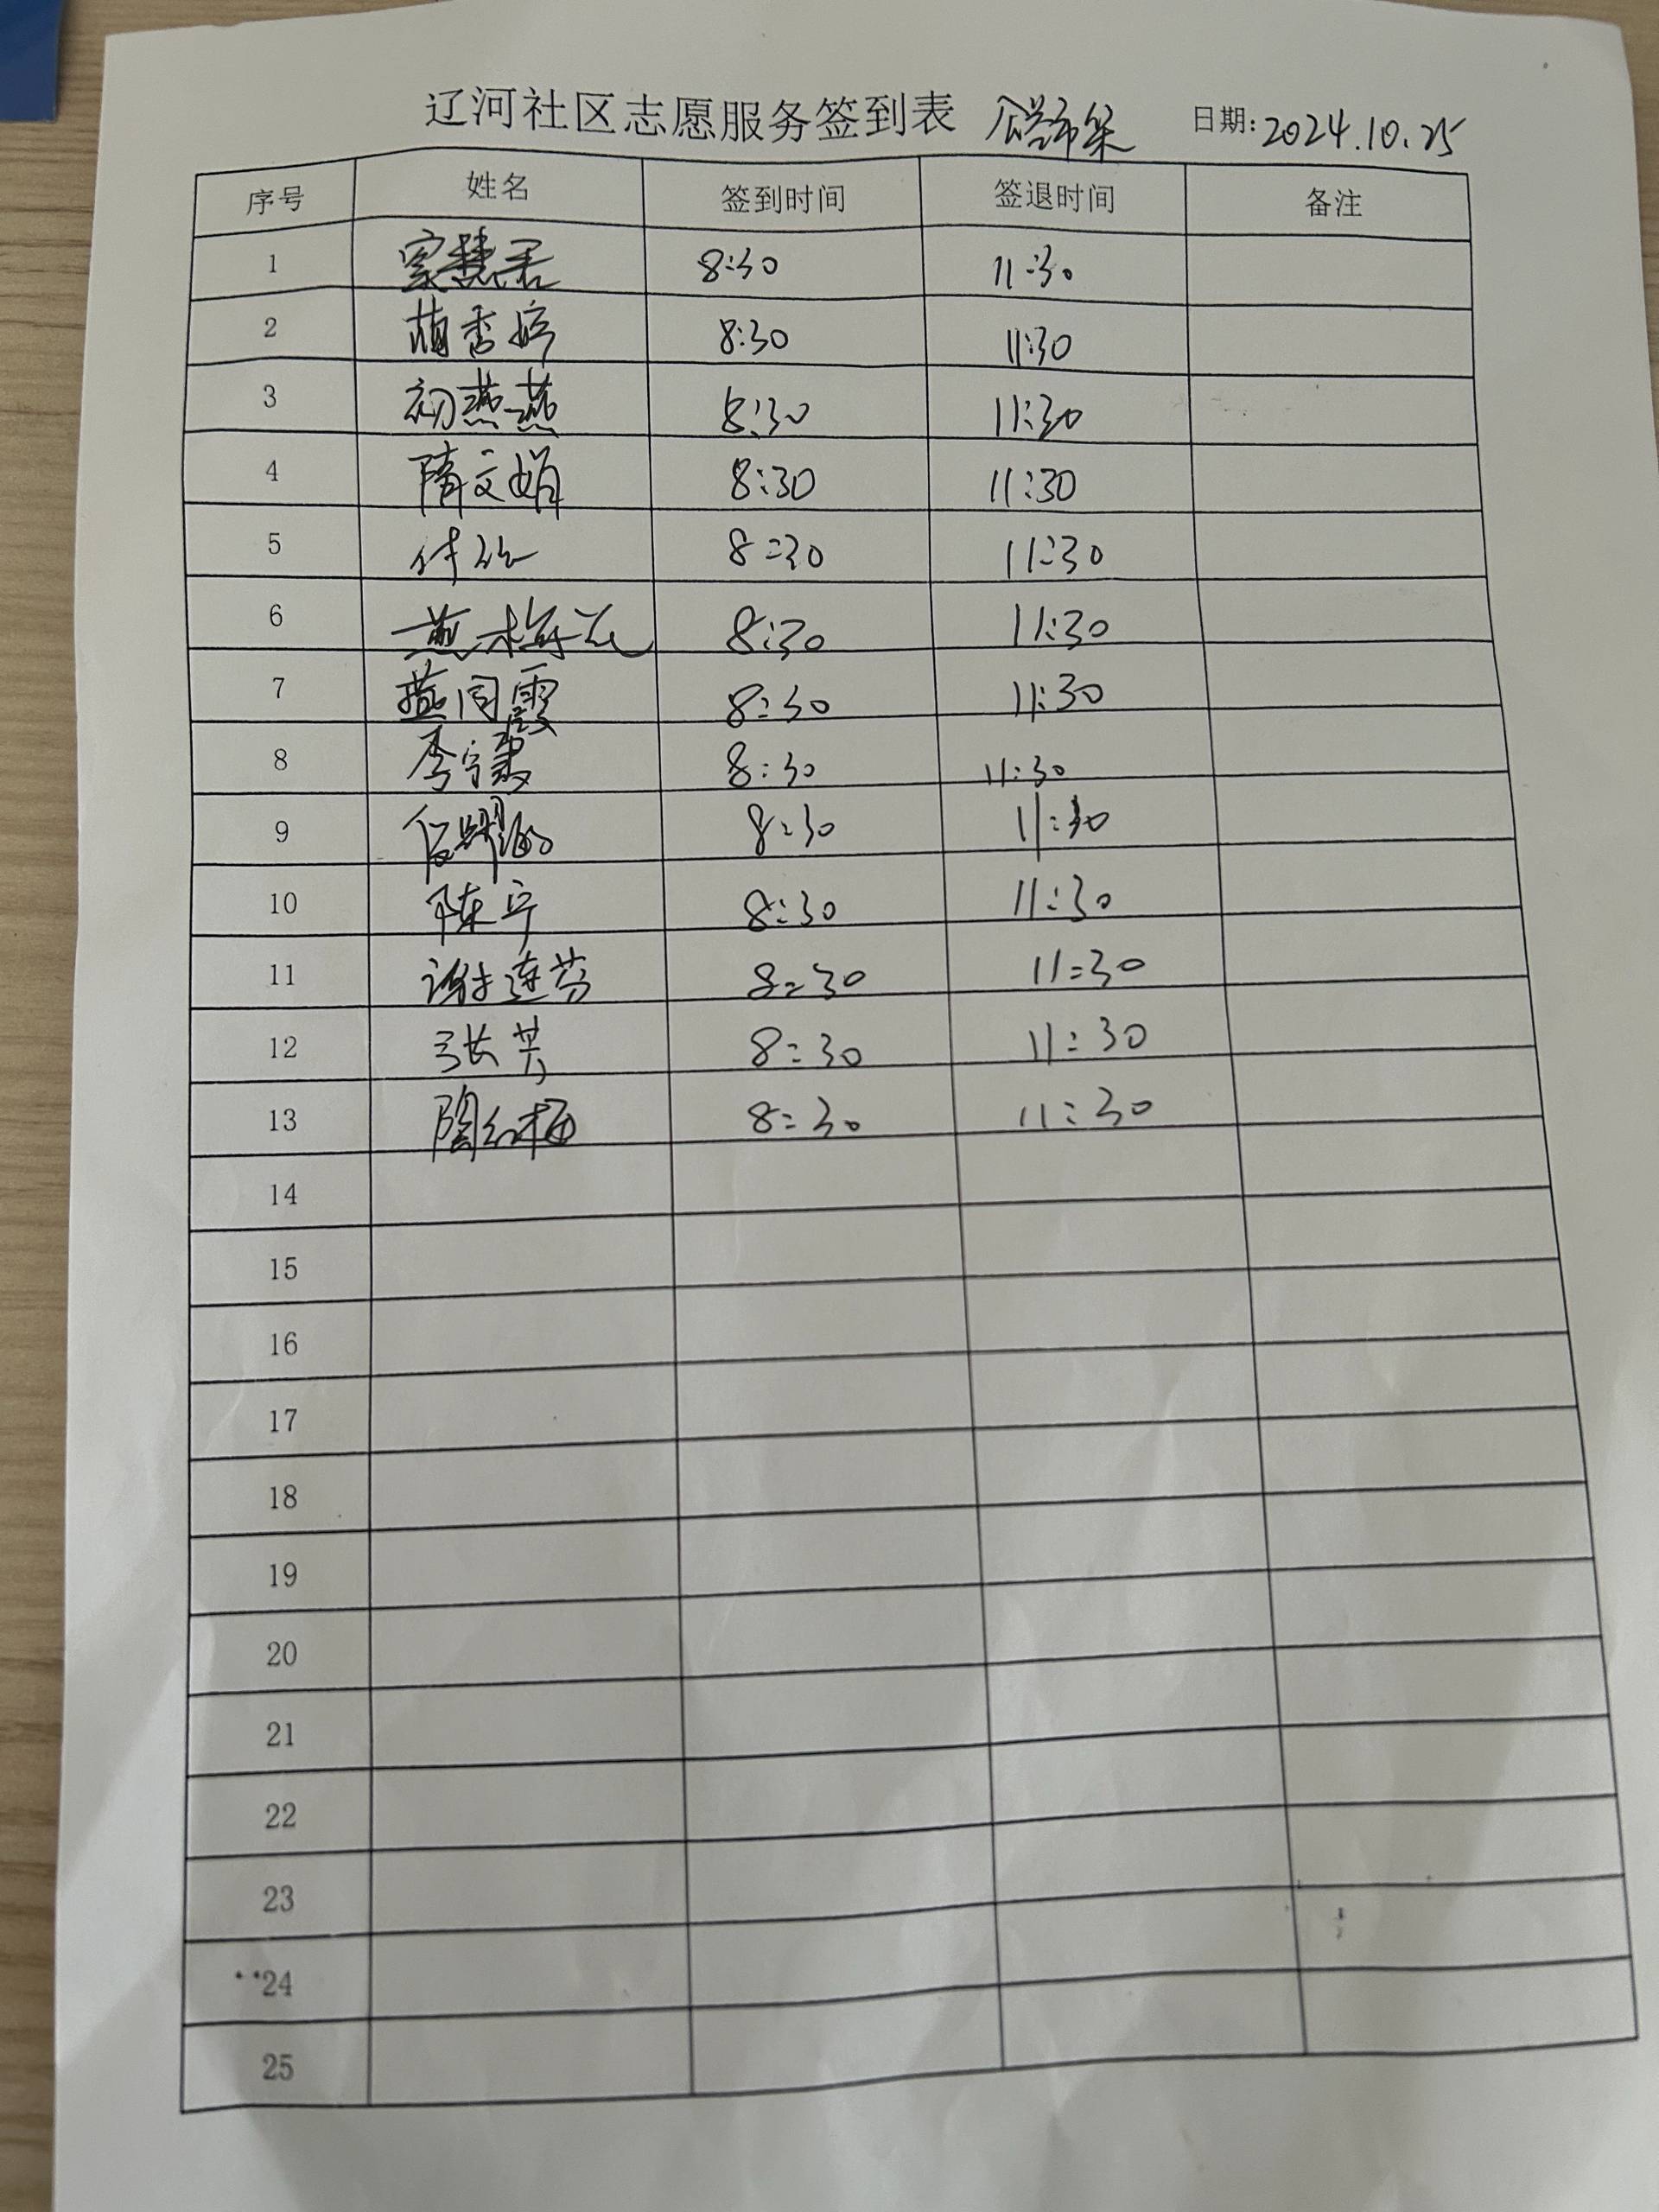 辽河社区志愿服务签到表 公益市集 日期:2024.10.25
序号 姓名 签到时间 签退时间 备注
1 8:30 11:30
2 8:30 11:30
3 初燕燕 8:30 11:30
4 隋文娟 8:30 11:30
5 8:30 11:30
6 8:30 11:30
7 燕同霞 8:30 11:30
8 8:30 11:30
9 8:30 11:30
10 陈宁 8:30 11:30
11 谢连芬 8:30 11:30
12 8:30 11:30
13 陶红梅 8:30 11:30
14
15
16
17
18
19
20
21
22
23
24
25